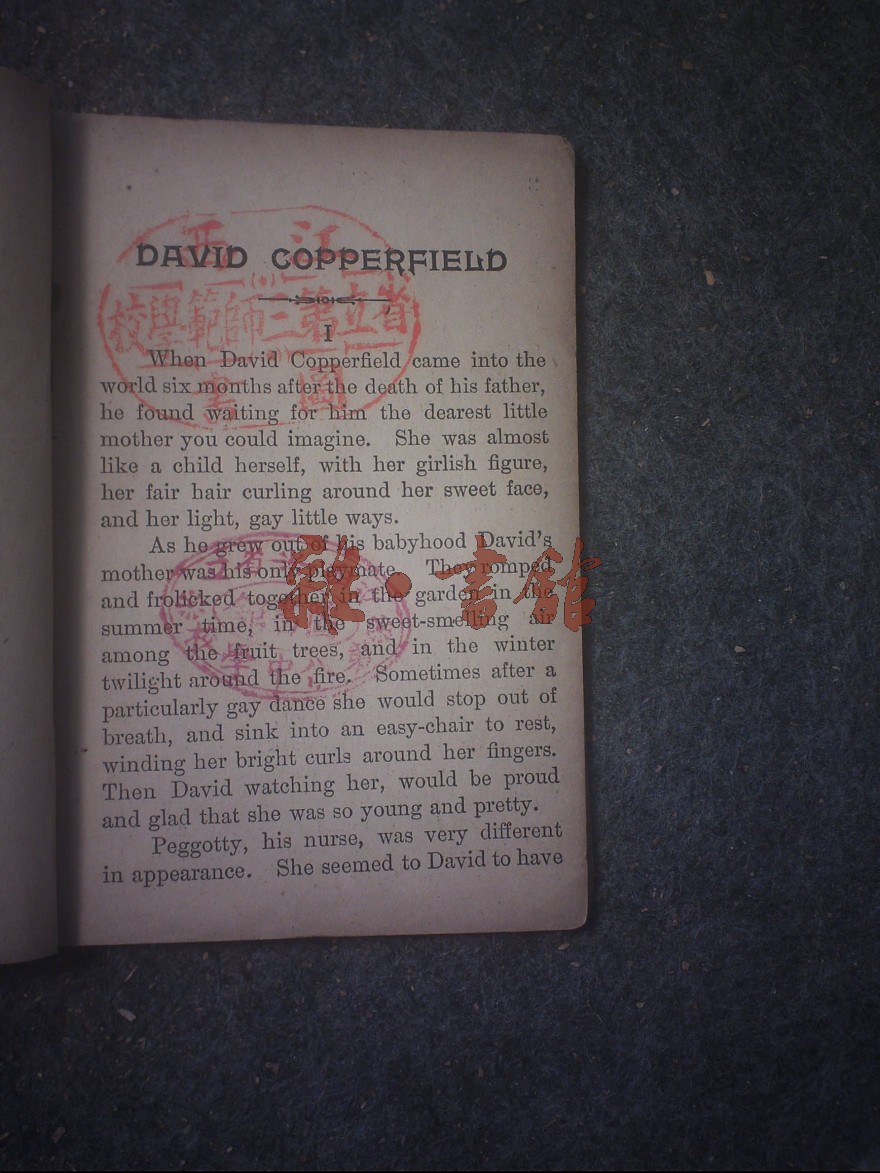 江西
DAVID COPPERFIELD
省立第三師範學校
I
圖書
When David Copperfield came into the
world six months after the death of his father,
he found waiting for him the dearest little
mother you could imagine. She was almost
like a child herself, with her girlish figure,
her fair hair curling around her sweet face,
and her light, gay little ways.
As he grew out of his babyhood David's
mother was his only playmate. They romped
and frolicked together in the garden in the
summer time, in the sweet-smelling air
among the fruit trees, and in the winter
twilight around the fire. Sometimes after a
particularly gay dance she would stop out of
breath, and sink into an easy-chair to rest,
winding her bright curls around her fingers.
Then David watching her, would be proud
and glad that she was so young and pretty.
Peggotty, his nurse, was very different
in appearance. She seemed to David to have
雜·書館